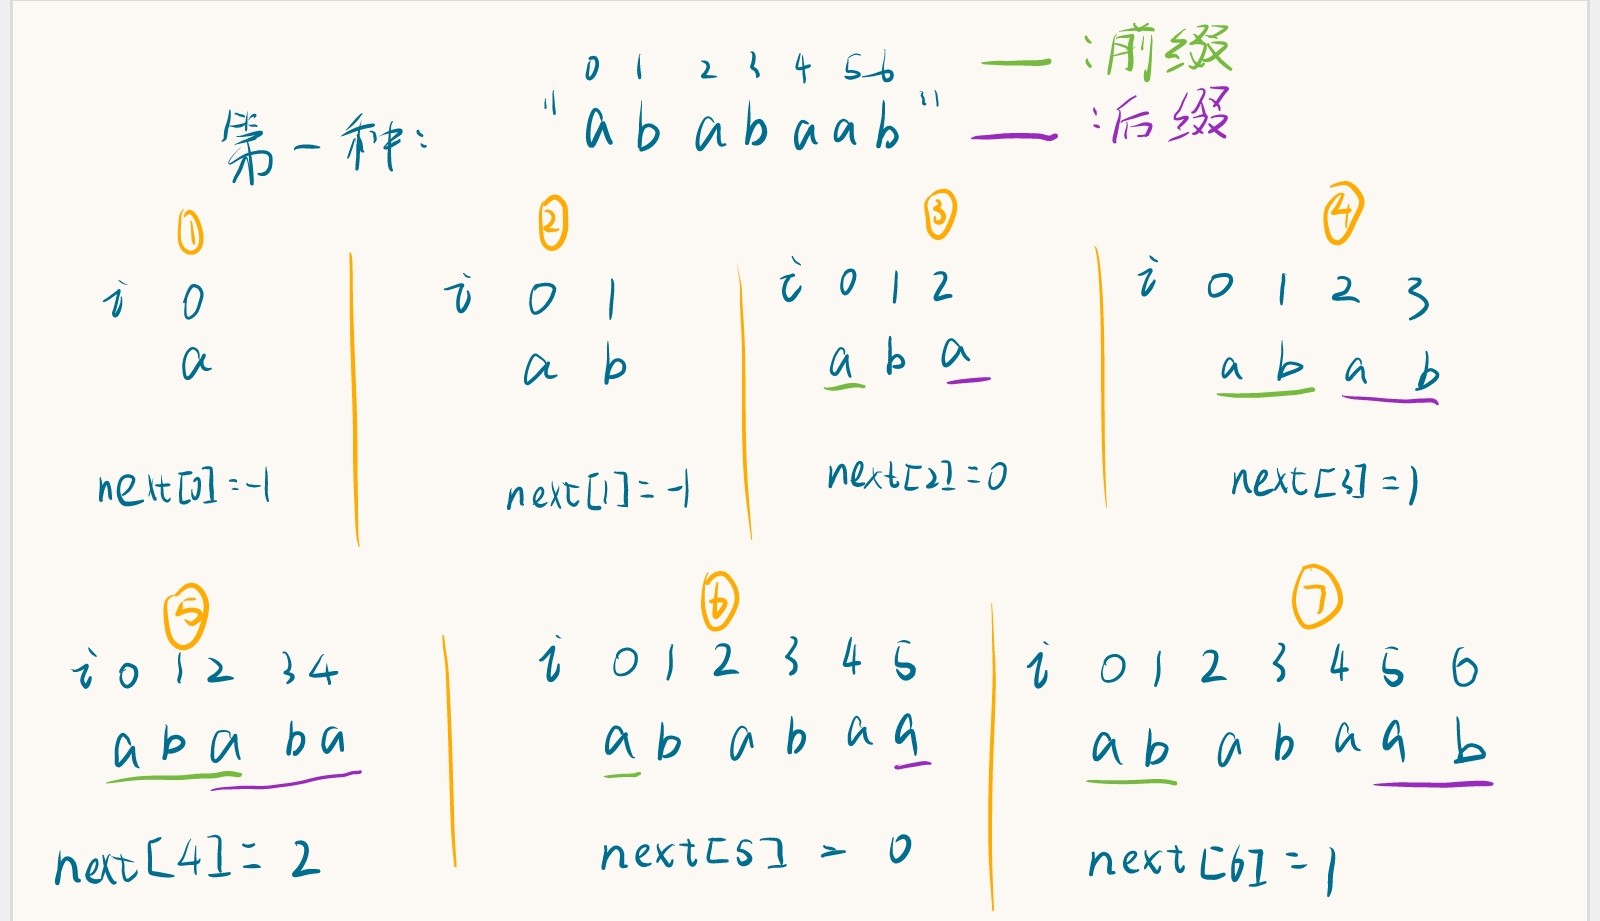 0 1 2 3 4 5 6 — :前缀
第一种: "a b a b a a b" — :后缀
① ② ③ ④
i 0
a
next[0]=-1
i 0 1
a b
next[1]=-1
i 0 1 2
a b a
next[2]=0
i 0 1 2 3
a b a b
next[3]=1
⑤ ⑥ ⑦
i 0 1 2 3 4
a b a b a
next[4]=2
i 0 1 2 3 4 5
a b a b a a
next[5]=0
i 0 1 2 3 4 5 6
a b a b a a b
next[6]=1